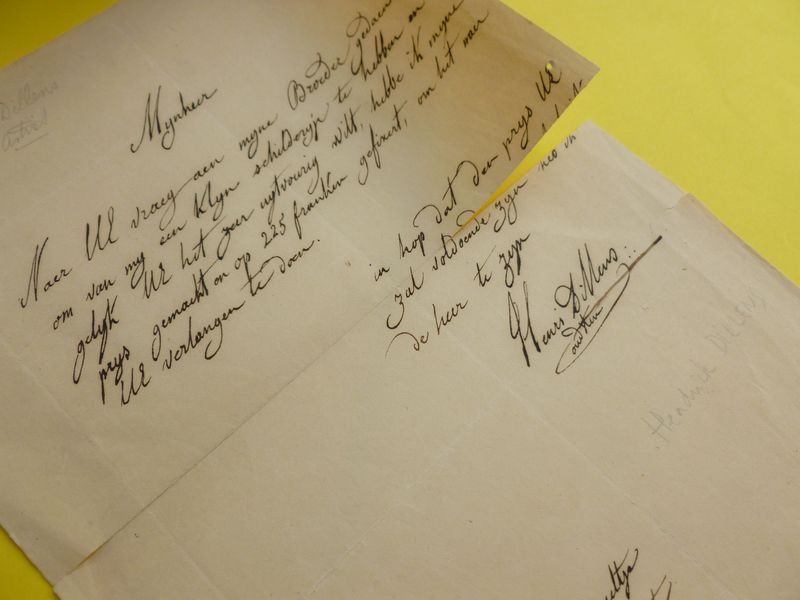 Dillens
Mijnheer
Naer UE vraeg aen myne Broeder gedaen
om van my een klyn schilderyje te hebben en
gelyk UE het zeer uytvourig wilt, hebbe ik myne
prys gemacht en op 225 franken gefixeert, om het naer
UE verlangen te doen.
in hop dat den prys UE
zal voldoende zyn
de heer te zyn
Henri Dillens
Hendrik Dillens